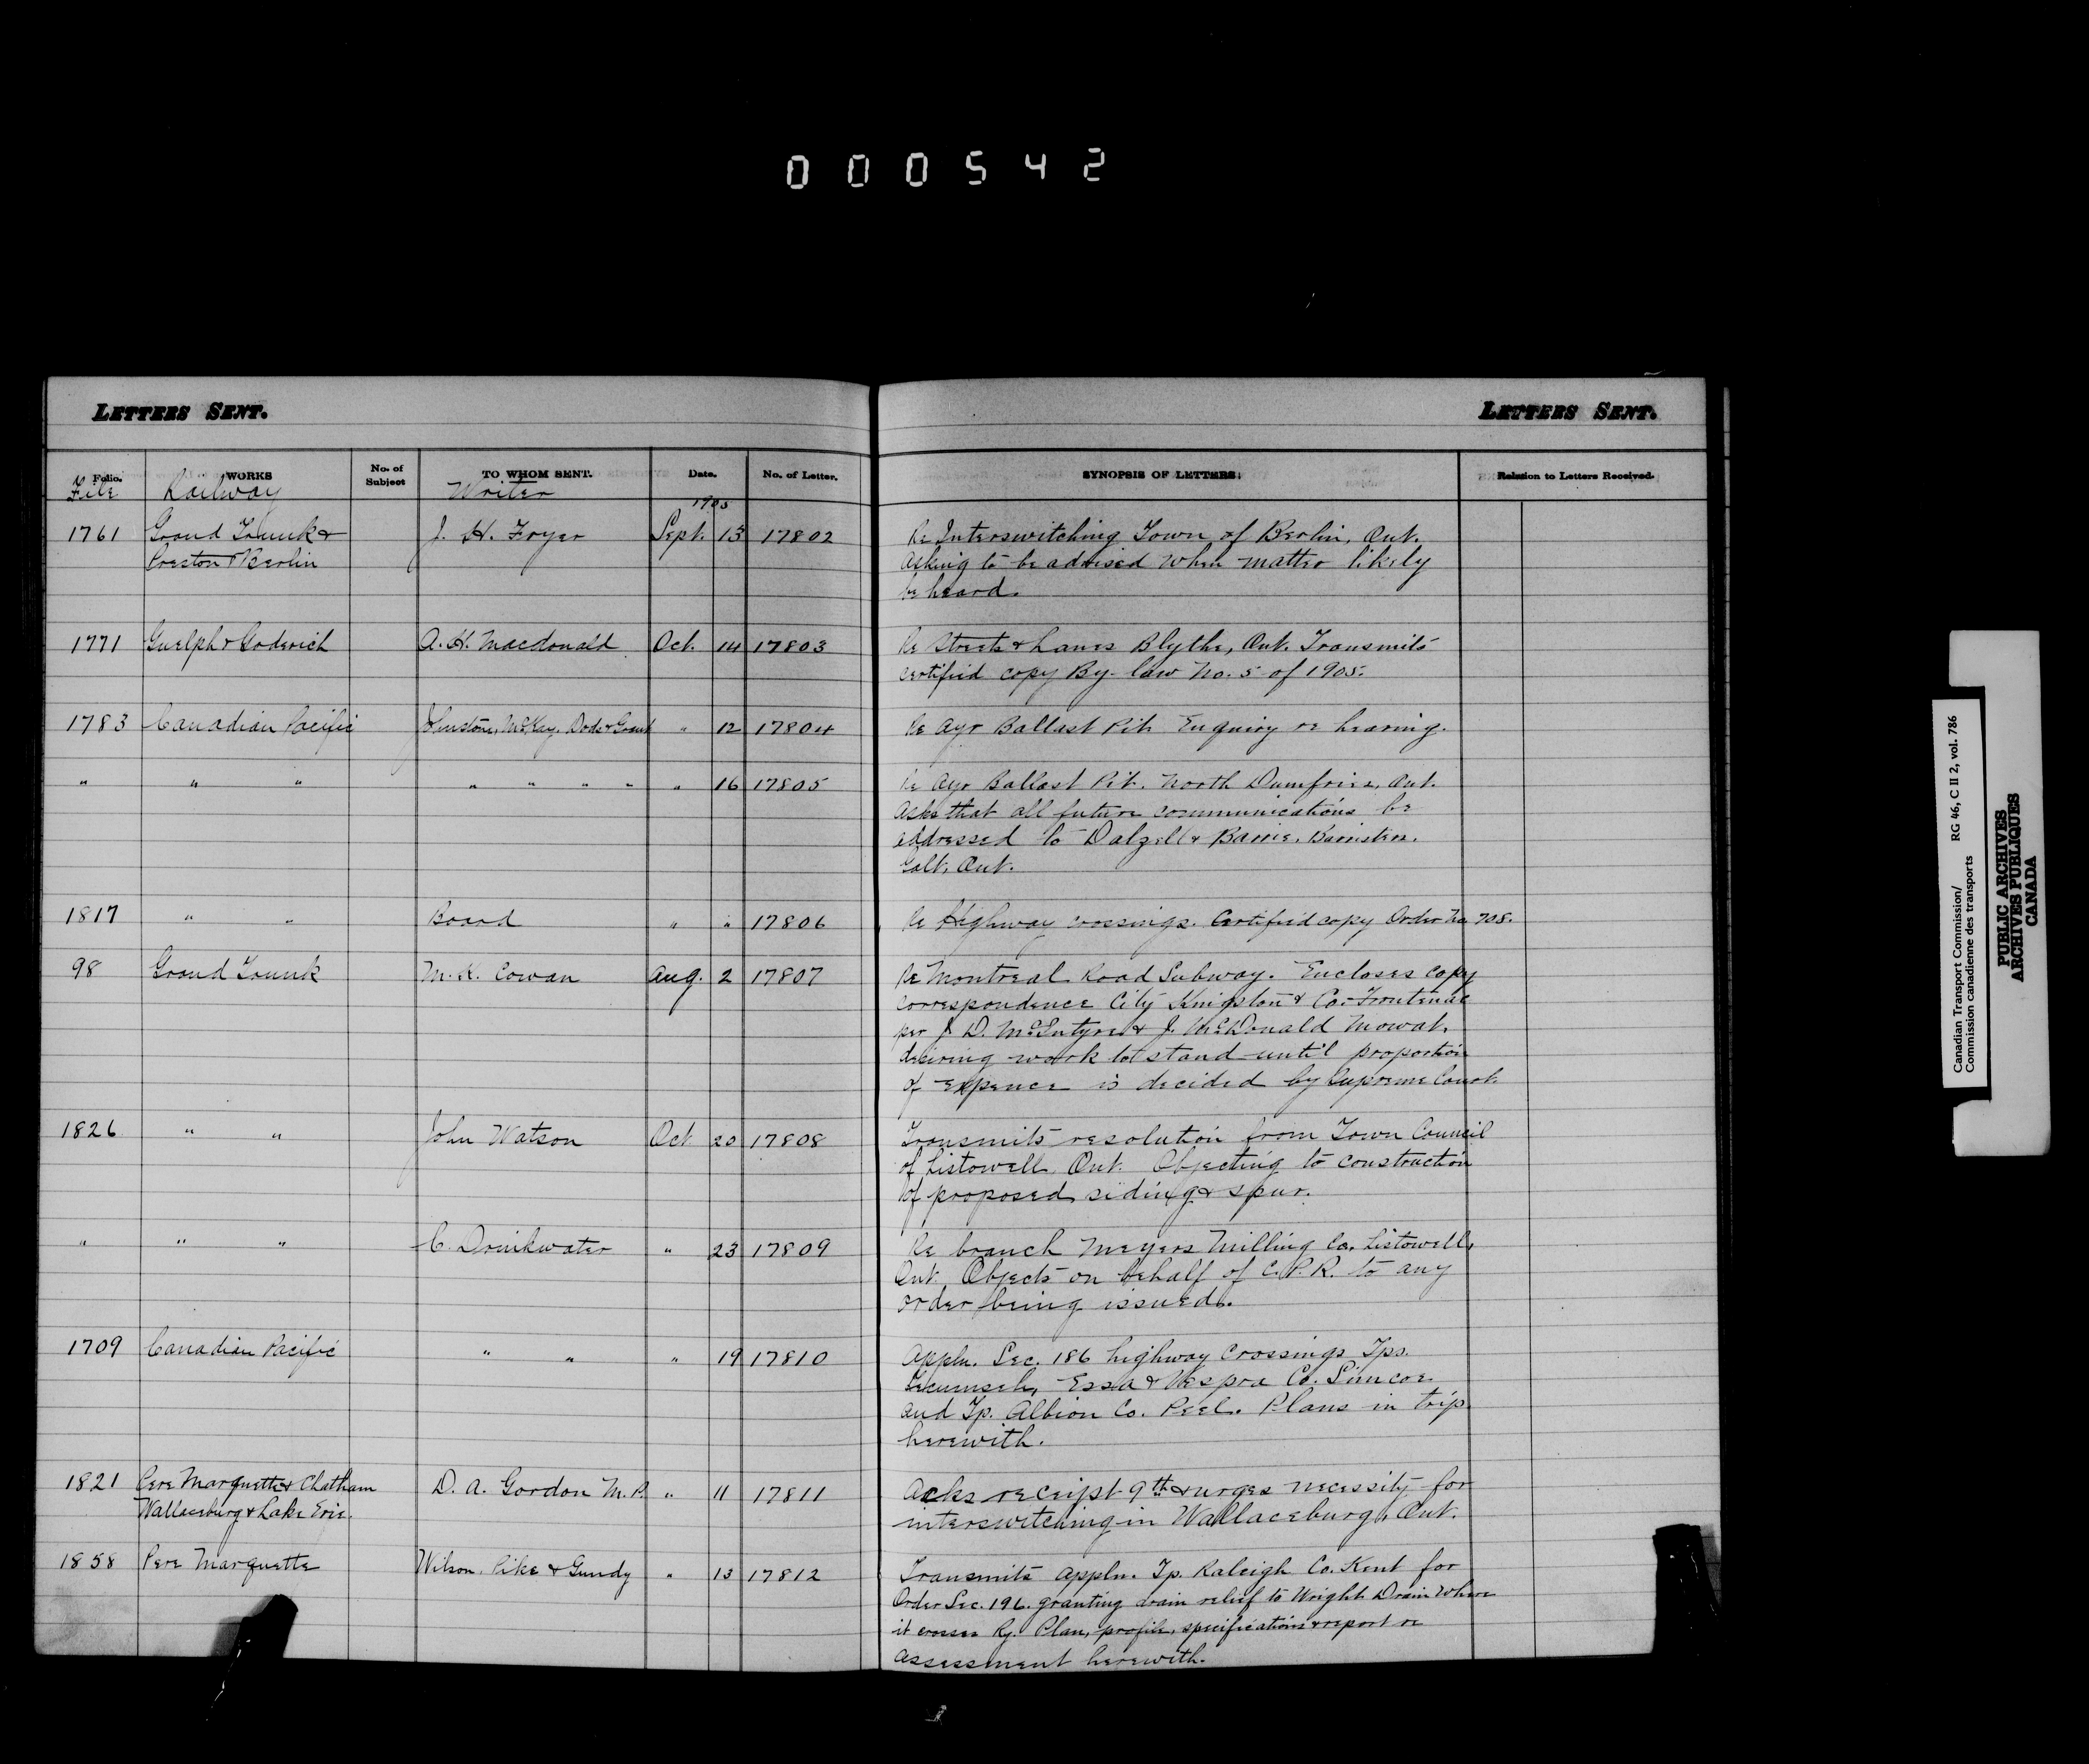 000542
LETTERS SENT.
LETTERS SENT.
Folio. WORKS No. of Subject TO WHOM SENT. Date. No. of Letter. SYNOPSIS OF LETTERS. Relation to Letters Received.
File Railway Writer 1905
1761 Grand Trunk & J. H. Fryer Sept. 13 17802 Re Interswitching Town of Berlin, Ont.
Preston & Berlin Asking to be advised when matter likely
be heard.
1771 Guelph & Goderich A. H. Macdonald Oct. 14 17803 Re Streets & Lanes Blythe, Ont. Transmits
certified copy By-law No. 5 of 1905.
1783 Canadian Pacific Johnstone, McKay, Dods & Grant " 12 17804 Re Ayr Ballast Pit. Enquiry re hearing.
" " " " " " " " 16 17805 Re Ayr Ballast Pit. North Dumfries, Ont.
Asks that all future communications be
addressed to Dalzell & Barrie, Barristers.
Galt, Ont.
1817 " " Board " " 17806 Re Highway crossings. Certified copy Order No. 708.
98 Grand Trunk M. K. Cowan Aug. 2 17807 Re Montreal Road Subway. Encloses copy
correspondence City Kingston & Co. Frontenac
per J. D. McIntyre & J. McDonald Mowat.
desiring work to stand until proportion
of expence is decided by Supreme Court.
1826 " " John Watson Oct. 20 17808 Transmits resolution from Town Council
of Listowell Ont. Objecting to construction
of proposed siding & spur.
" " " C. Drinkwater " 23 17809 Re branch Meyers Milling Co. Listowell,
Ont. Objects on behalf of C.P.R. to any
order being issued.
1709 Canadian Pacific " " " 19 17810 Appln. Sec. 186 highway crossings Tps.
Tecumseh, Essa & Vespra Co. Simcoe
and Tp. Albion Co. Peel. Plans in trip.
herewith.
1821 Pere Marquette & Chatham D. A. Gordon M.P. " 11 17811 Acks receipt 9th & urges necessity for
Wallaceburg & Lake Erie. interswitching in Wallaceburg, Ont.
1858 Pere Marquette Wilson, Pike & Gundy " 13 17812 Transmits appln. Tp. Raleigh Co. Kent for
Order Sec. 196. granting drain relief to Wright Drain where
it crosses Ry. Plan, profile, specifications & report re
assessment herewith.
Canadian Transport Commission/ RG 46, C II 2, vol. 786
Commission canadienne des transports
PUBLIC ARCHIVES
ARCHIVES PUBLIQUES
CANADA